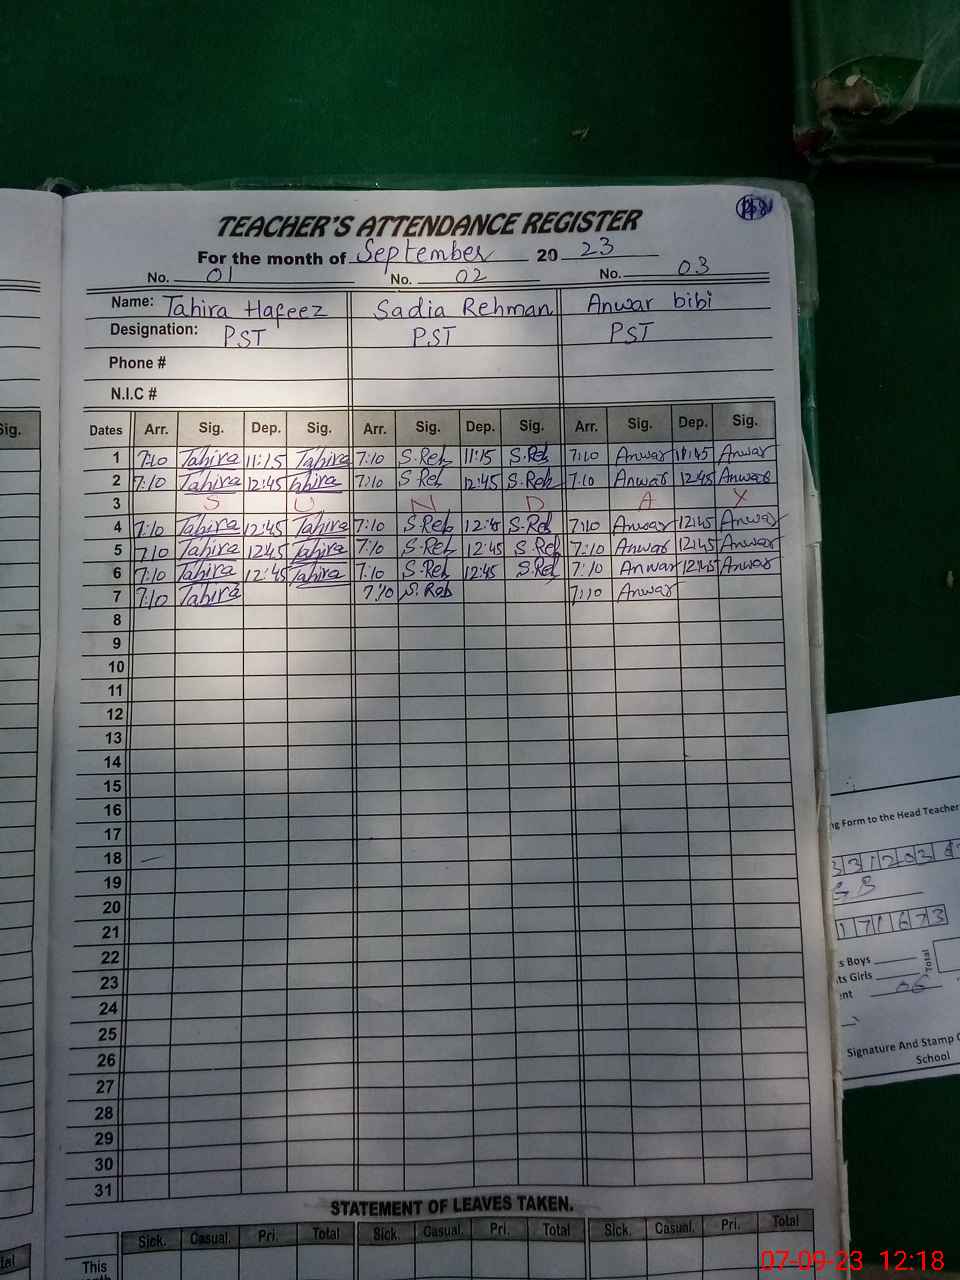 TEACHER'S ATTENDANCE REGISTER
For the month of September 2023
No. 01 No. 02 No. 03
Name: Tahira Hafeez Sadia Rehman Anwar bibi
Designation: PST PST PST
Phone #
N.I.C #
Sig. Dates Arr. Sig. Dep. Sig. Arr. Sig. Dep. Sig. Arr. Sig. Dep. Sig.
1 7:10 Tahira 11:15 Tahira 7:10 S.Reh 11:15 S.Reh 7:10 Anwar 11:45 Anwar
2 7:10 Tahira 12:45 Tahira 7:10 S.Reh 12:45 S.Reh 7:10 Anwar 12:45 Anwar
3 S U N D A Y
4 7:10 Tahira 12:45 Tahira 7:10 S.Reh 12:45 S.Reh 7:10 Anwar 12:45 Anwar
5 7:10 Tahira 12:45 Tahira 7:10 S.Reh 12:45 S.Reh 7:10 Anwar 12:45 Anwar
6 7:10 Tahira 12:45 Tahira 7:10 S.Reh 12:45 S.Reh 7:10 Anwar 12:45 Anwar
7 7:10 Tahira 7:10 S.Reh 7:10 Anwar
8
9
10
11
12
13
14
15
16
17
18 —
19
20
21
22
23
24
25
26
27
28
29
30
31
STATEMENT OF LEAVES TAKEN.
Sick. Casual. Pri. Total Sick. Casual. Pri. Total Sick. Casual. Pri. Total
This
ng Form to the Head Teacher
331203
171673
s Boys
ts Girls
Total
ent 06
Signature And Stamp
School
07-09-23 12:18